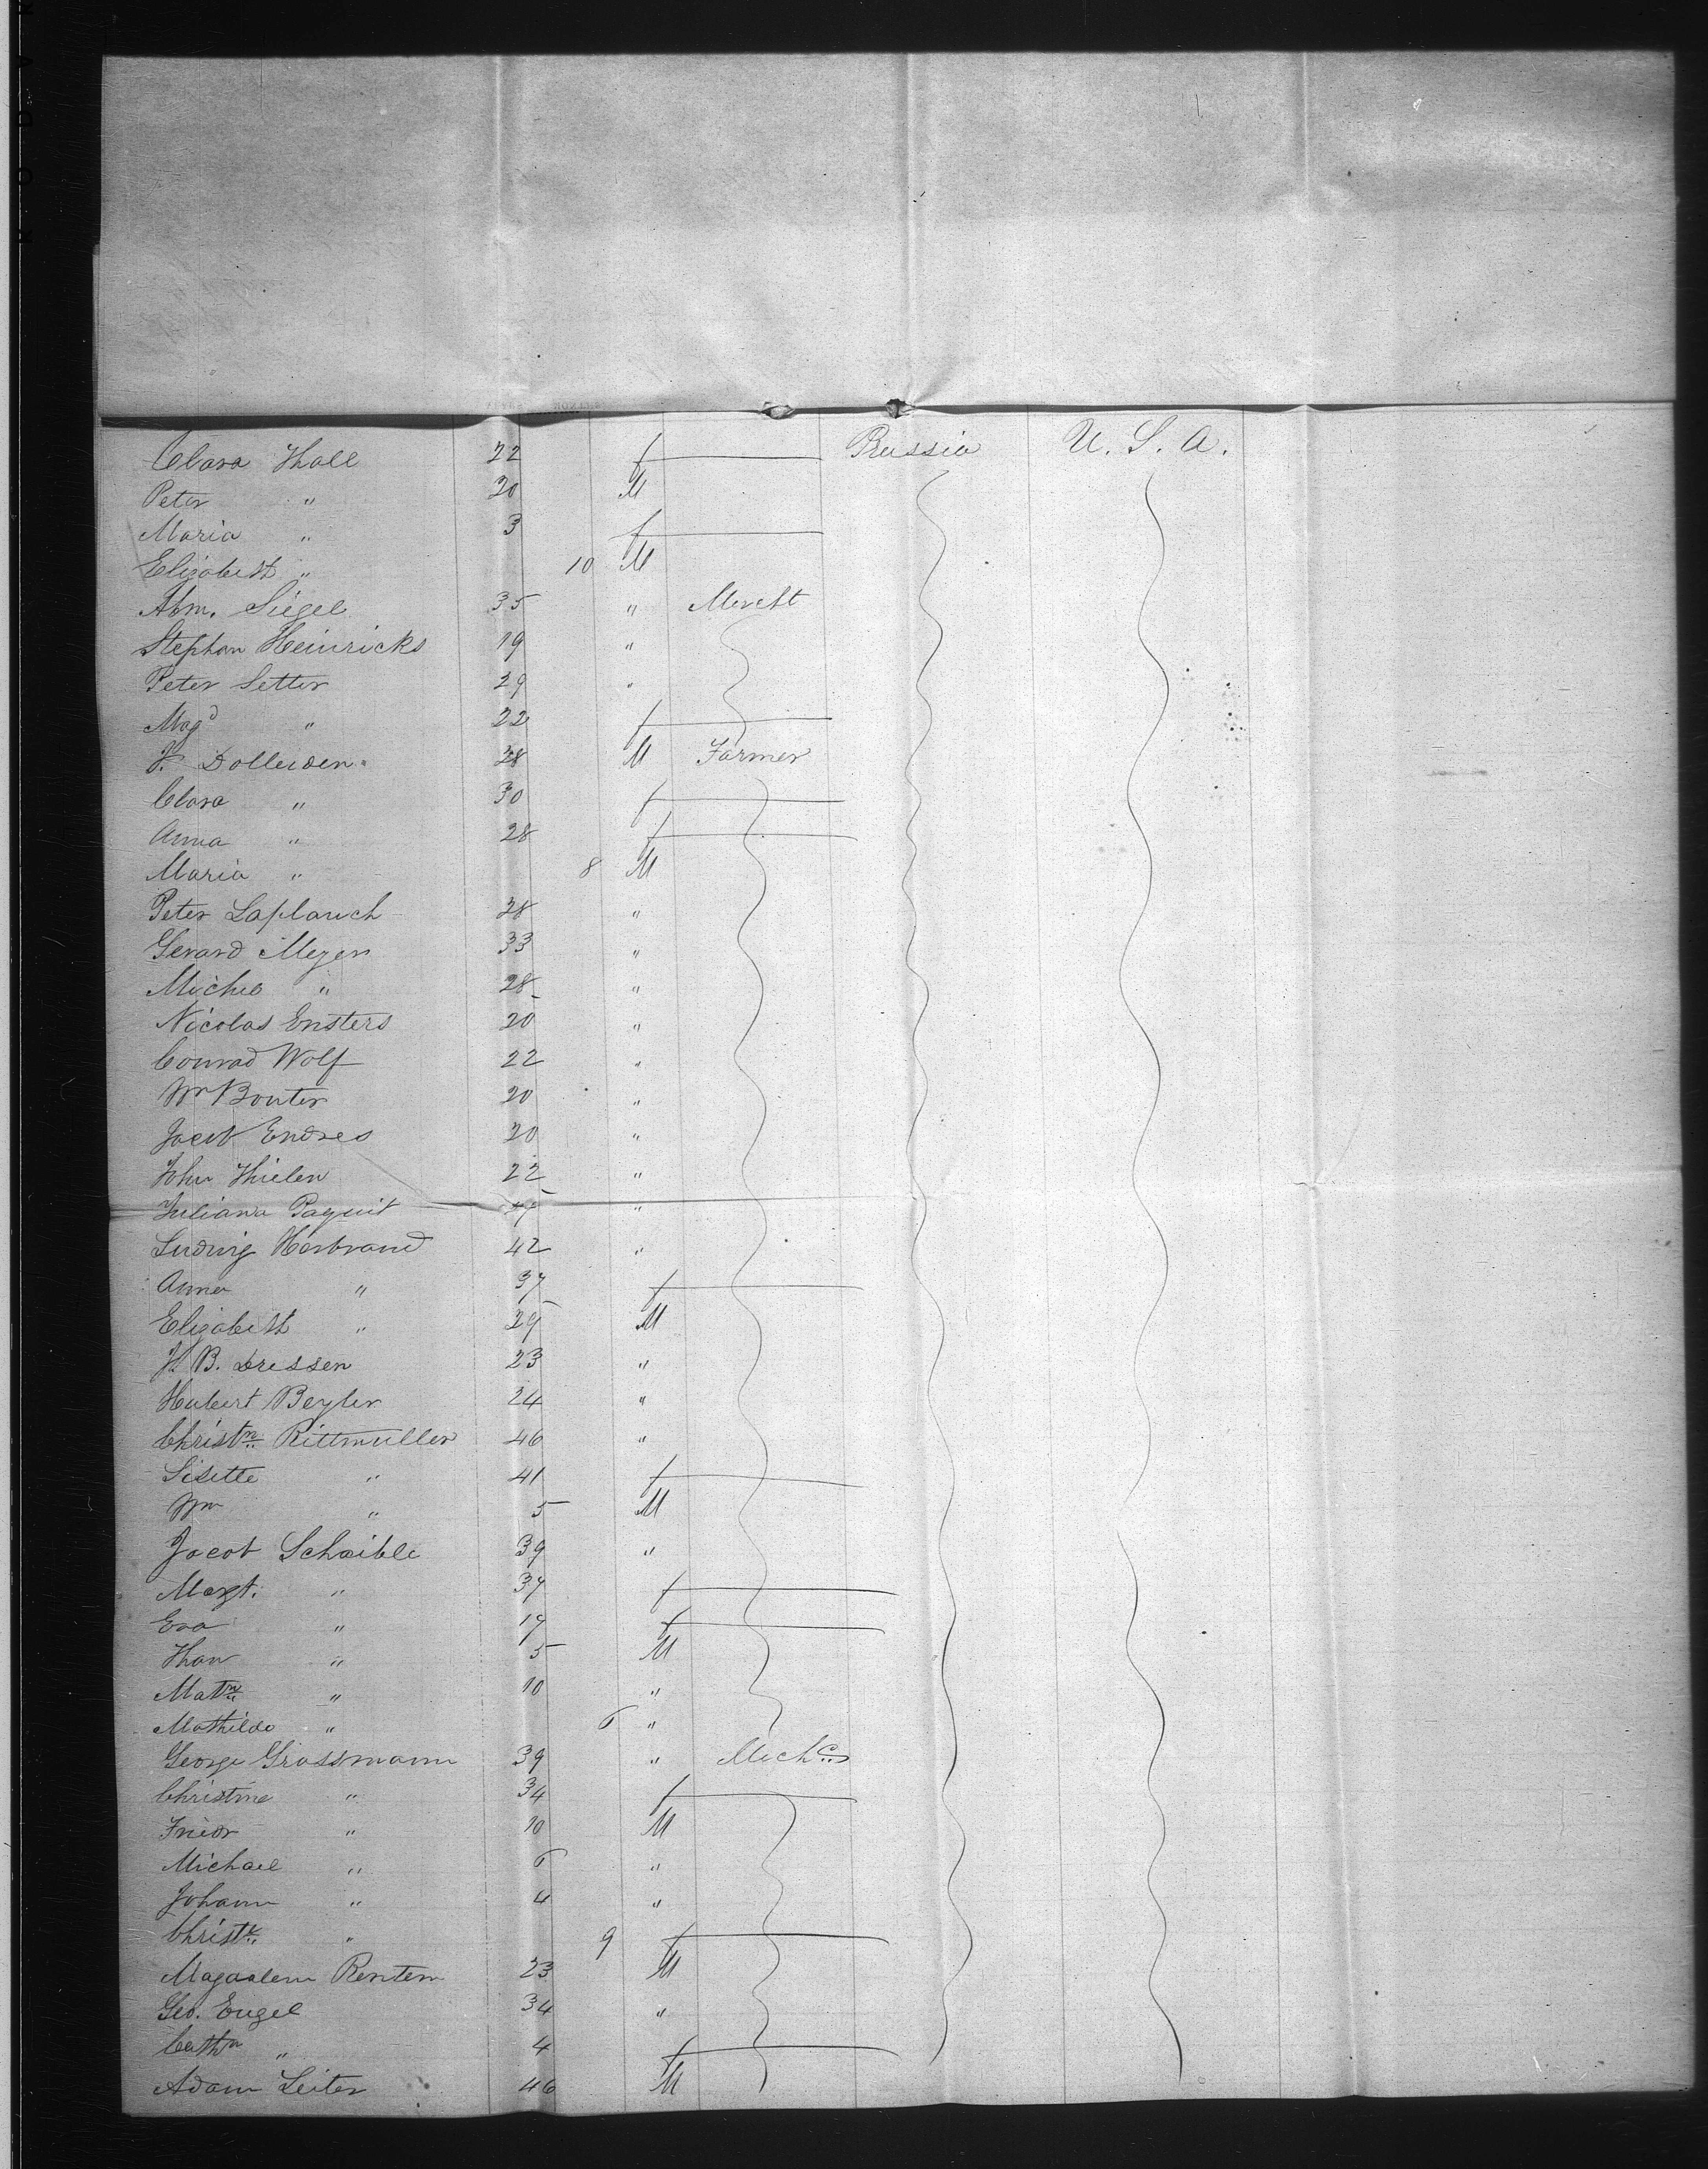 Clara Thall 22 f Prussia U. S. A.
Peter " 20 M
Maria " 3 f
Elizabeth " 10 M
Abm. Siegel 35 " Mercht
Stephan Heinricks 19 "
Peter Setter 29 "
Magd " 22 f
J. Dolleiden 28 M Farmer
Clara " 30 f
Anna " 28 f
Maria " 8 M
Peter Laplauch 28 "
Gerard Meyer 33 "
Michel " 28 "
Nicolas Ensters 20 "
Conrad Wolf 22 "
Wm Bonter 20 "
Jacob Endres 20 "
John Thielen 22 "
Juliana Paquit "
Ludwig Herbrand 42 "
Anna " 37 f
Elizabeth " 29 M
H. B. Dressen 23 "
Hubert Beyler 24 "
Christn Rittmuller 46 "
Lisette " 41 f
Wm " 5 M
Jacob Schaible 39 "
Margt. " 37 f
Eva " 17 f
" 5 M
" 10 "
Mathilde " 6 "
George Grossmann 39 " Mechcs
Christine " 34 f
Friedr " 10 M
Michael " 6 "
Johann " 4 "
" 9 f
Magdalena 23 M
Geo. Engel 34 "
Cathn " 4 f
Adam Leiter 46 M